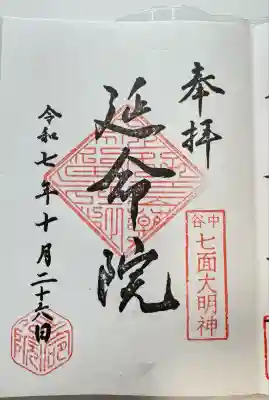 奉拝
谷中
七面大明神
延命院
令和七年十月二十六日